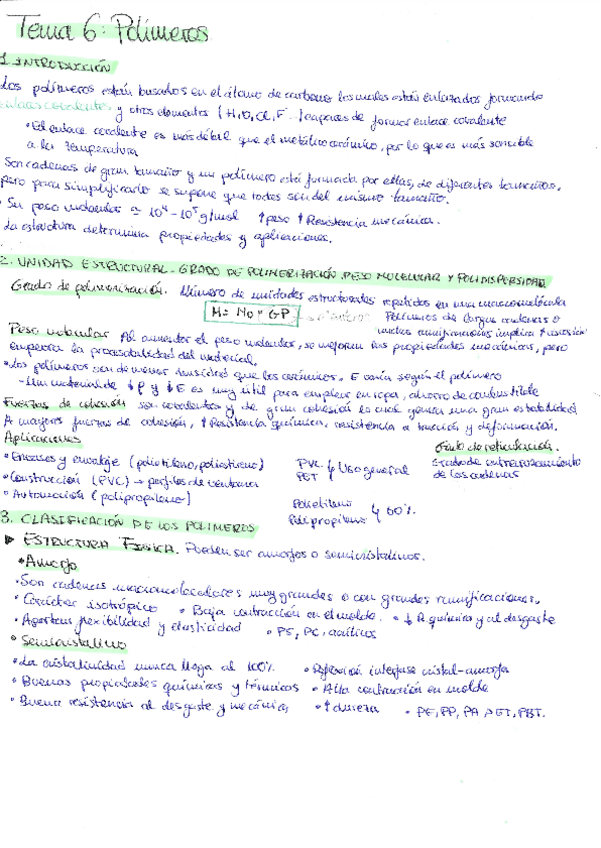 Tema 6: Polímeros
1. INTRODUCCIÓN
Los polímeros están basados en el átomo de carbono los cuales están enlazados formando
enlaces covalentes y otros elementos (H, O, Cl, F...) capaces de formar enlace covalente
• El enlace covalente es más débil que el metálico/cerámico, por lo que es más sensible
a la temperatura
Son cadenas de gran tamaño y un polímero está formado por ellas, de diferentes tamaños,
pero para simplificarlo se supone que todas son del mismo tamaño.
• Su peso molecular ≃ 10⁴ - 10⁶ g/mol ↑ peso ↑ Resistencia mecánica.
La estructura determina propiedades y aplicaciones.
2. UNIDAD ESTRUCTURAL - GRADO DE POLIMERIZACIÓN, PESO MOLECULAR Y POLIDISPERSIDAD
Grado de polimerización. Número de unidades estructurales repetidas en una macromolécula
M = Mo · GP Polímeros de largas cadenas o
muchas ramificaciones implica ↑
Peso molecular Al aumentar el peso molecular, se mejoran las propiedades mecánicas, pero
empeora la procesabilidad del material.
• Los polímeros son de menor densidad que los cerámicos. E varía según el polímero
- Un material de ↓ρ y ↓E es muy útil para emplear en ropa, ahorro de combustible
Fuerzas de cohesión son covalentes y de gran cohesión lo cual genera una gran estabilidad
A mayores fuerzas de cohesión, ↑ Resistencia química, resistencia a tracción y deformación.
Aplicaciones Grado de reticulación.
• Envases y envalaje (polietileno, poliestireno) PVC PET Uso general Grado de entrecruzamiento
de las cadenas
• Construcción (PVC) → perfiles de ventana
• Automoción (polipropileno) Polietileno Polipropileno 60%
3. CLASIFICACIÓN DE LOS POLÍMEROS
▶ ESTRUCTURA FÍSICA. Pueden ser amorfos o semicristalinos.
• Amorfo
• Son cadenas macromoleculares muy grandes o con grandes ramificaciones.
• Carácter isotrópico • Baja contracción en el molde. • ↓ R química y al desgaste
• Aportan flexibilidad y elasticidad • PS, PC, acrílicos
• Semicristalino
• La cristalinidad nunca llega al 100% • interfase cristal-amorfo
• Buenas propiedades químicas y térmicas • Alta contracción en molde
• Buena resistencia al desgaste y mecánica, • ↑ dureza • PE, PP, PA, PET, PBT.